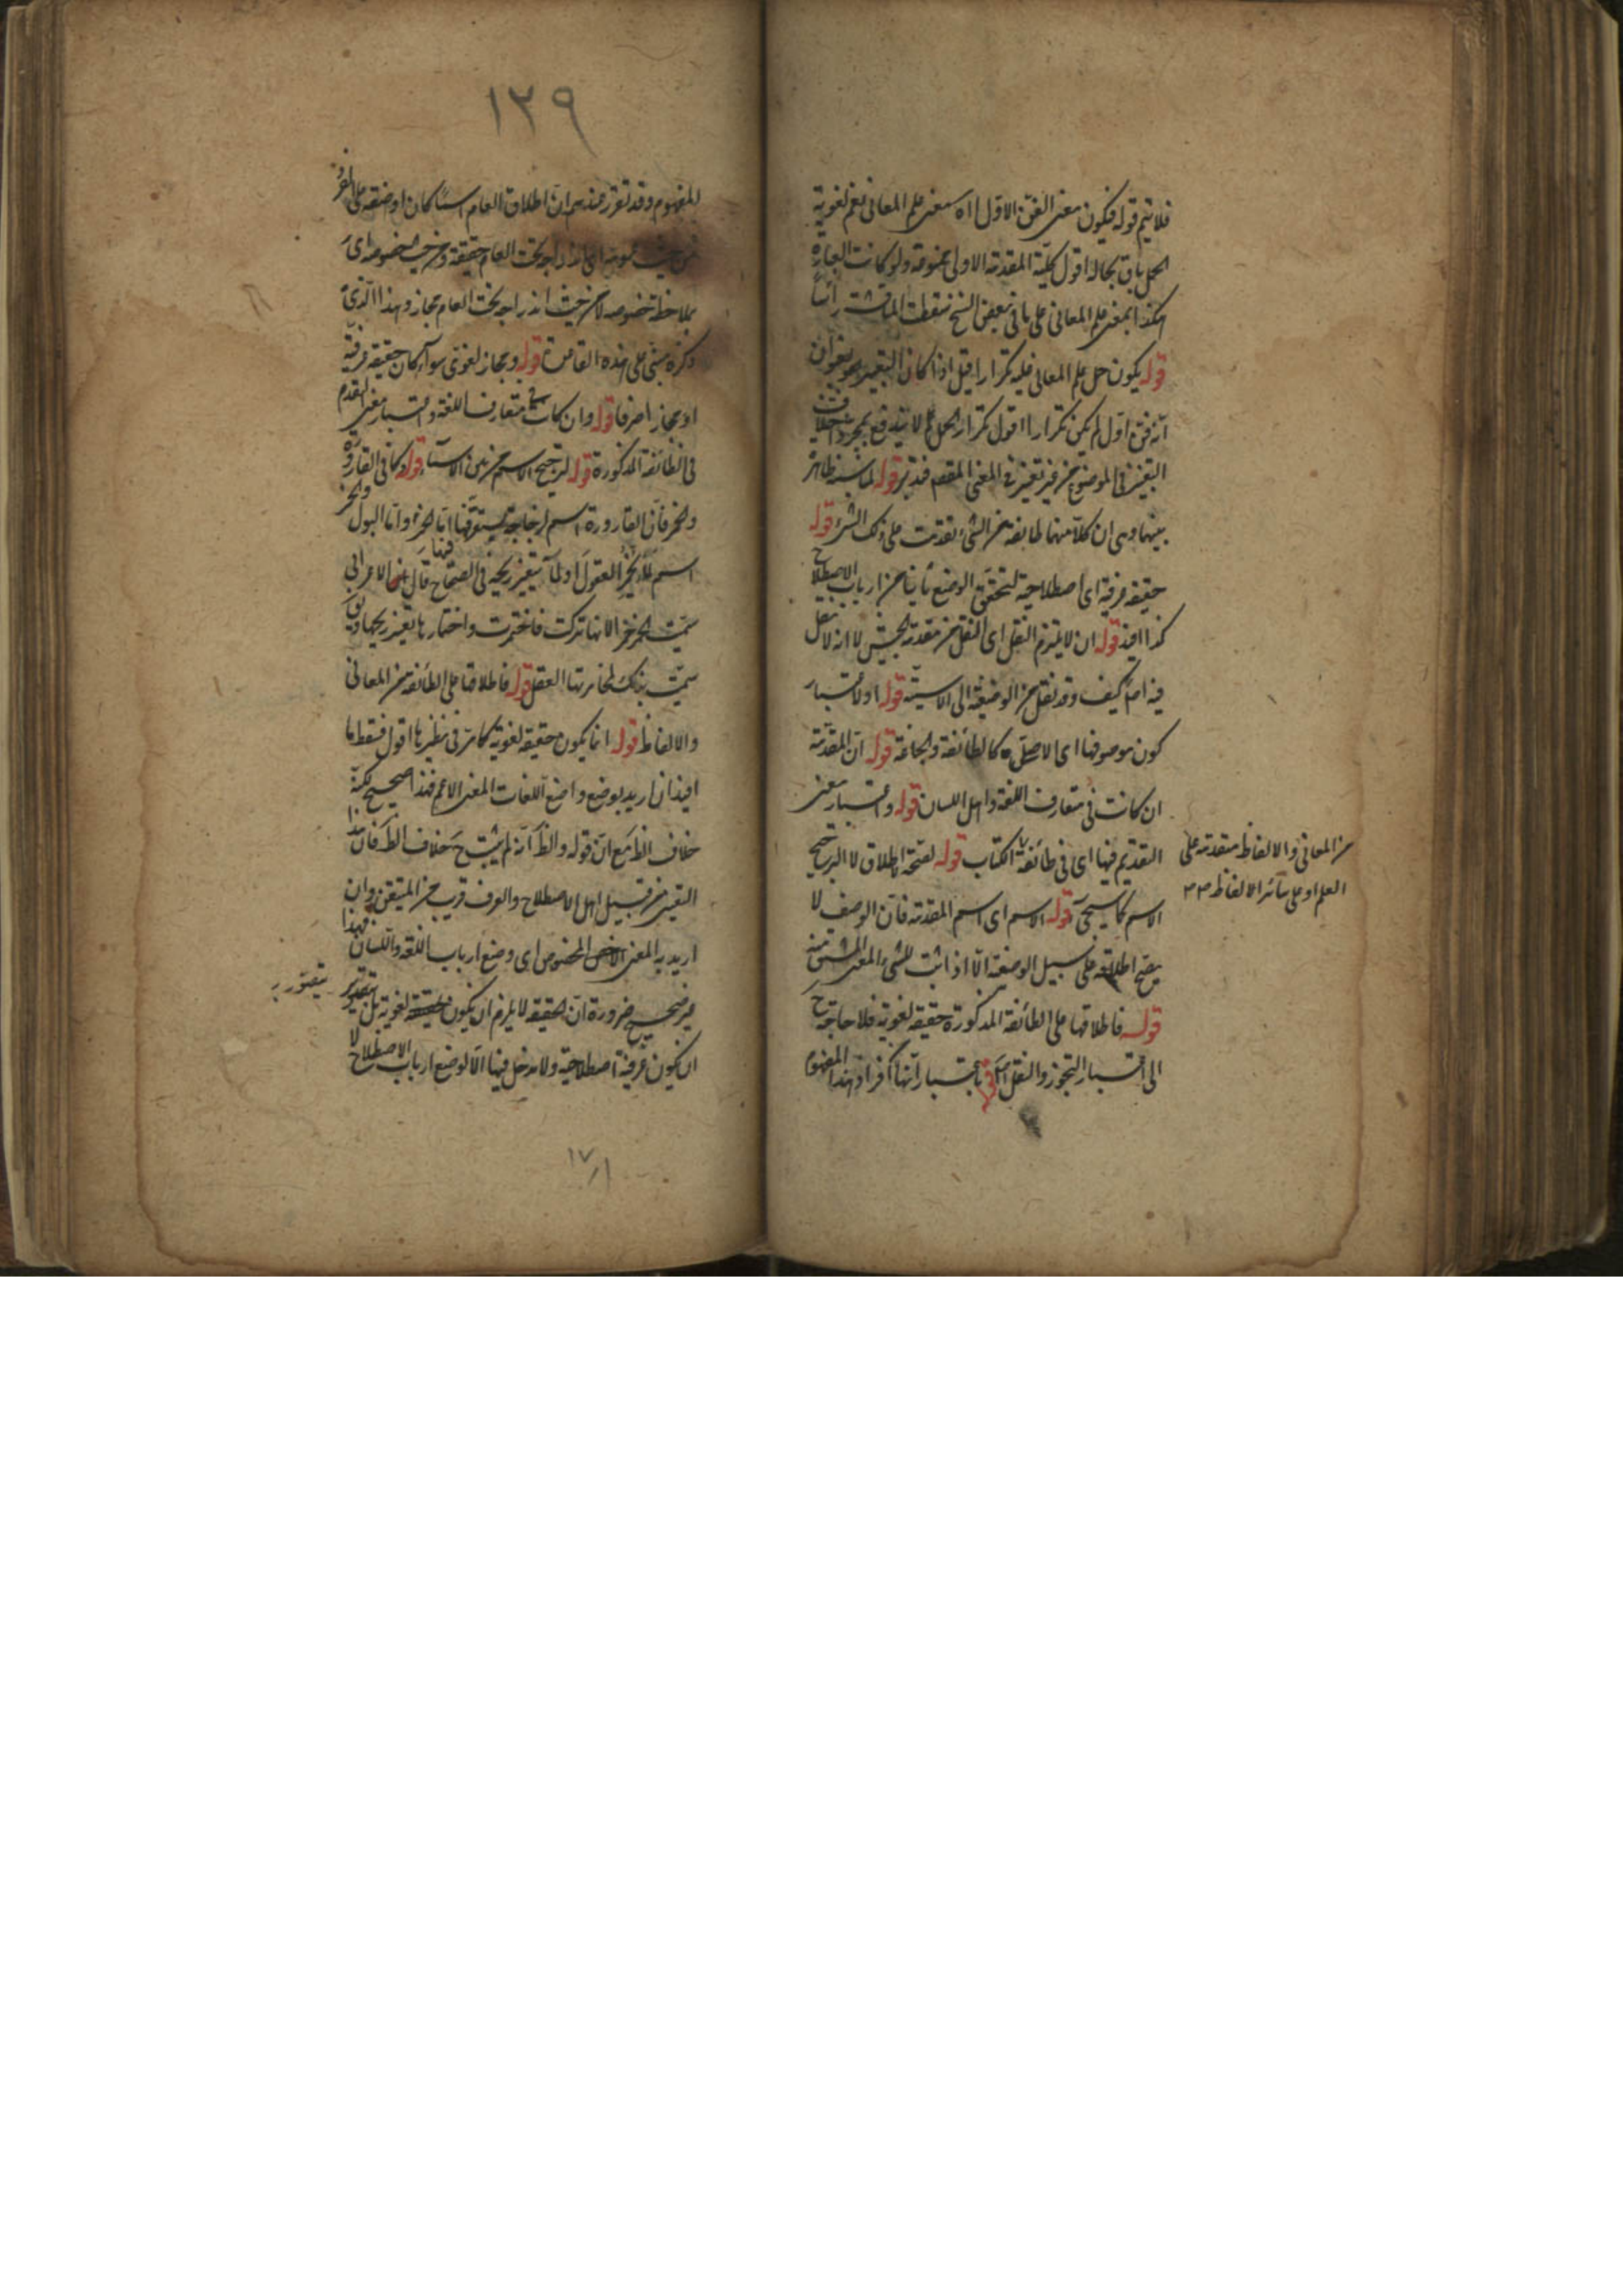 فلا يتم قوله فيكون معنى الفن الاول اه معنى علم المعانى نعم لغوية
الحمل باق بحاله اقول كلية المقدمة الاولى ممنوعة ولو كانت العبارة
هكذا بمعنى علم المعانى على ما فى بعض النسخ سقطت المناقشة رأسا
قوله يكون حمل علم المعانى عليه تكرارا قيل اذا كان التعبير بعنوان
انه فن اول لم يكن تكرارا اقول تكرار الحمل مما لا يندفع بمجرد اختلاف
التعبير فى الموضوع من غير تغيير فى المعنى المقصم فتدبر قوله لمناسبة ظاهرة
بينهما وهى ان كلا منهما طائفة من الشئ تقدمت على ذلك الشئ قوله
حقيقة عرفية اى اصطلاحية لتحقق الوضع ثانيا من ارباب الاصطلاح
كذا افيد قوله ان لا يلتزم النقل اى النقل من مقدمة الجيش لا انه لا نقل
فيه اصلا كيف وقد نقل من الوصفية الى الاسمية قوله اولا عتبار
كون موصوفها اى الاصلى كالطائفة والجماعة قوله ان المقدمة
ان كانت فى متعارف اللغة واهل اللسان قوله واعتبار معنى
التقديم فيها اى فى طائفة الكتاب قوله لصحة اطلاق لا لترجيح
الاسم كما سيجئ قوله الاسم اى اسم المقدمة فان الوصف لا
يصح اطلاقه على سبيل الوصفية الا اذا ثبت للشئ المعنى المشتق منه
قوله فاطلاقها على الطائفة المذكورة حقيقة لغوية فلا حاجة ح
الى اعتبار التجوز والنقل باعتبار انها افراد هذا المفهوم
من المعانى والالفاظ متقدمة على
العلم او على سائر الالفاظ
١٣٩
المفهوم وقد تقرر عندهم ان اطلاق العام اسما كان او صفة على الفرد
من حيث عمومه اى اندراجه تحت العام حقيقة ومن حيث خصوصه اى
بملاحظة خصوصه لا من حيث اندراجه تحت العام مجاز وهذا الذى
ذكره مبنى على هذه القاعدة قوله ومجاز لغوى سواء كان حقيقة عرفية
او مجازا صرفا قوله وان كانت فى متعارف اللغة واعتبار معنى التقدم
فى الطائفة المذكورة قوله لترجيح الاسم من بين الاسماء قوله كما فى القارورة
والخمر فان القارورة اسم لزجاجة يستقر فيها اما الخمر واما البول والخمر
اسم لما يخمر العقول او لما يتغير ريحه فى الصحاح قال ابن الاعرابى
سميت الخمر خمرا لانها تركت فاختمرت واختمارها تغير ريحها ويق
سميت بذلك لمخامرتها العقل قوله فاطلاقها على الطائفة من المعانى
والالفاظ قوله انما يكون حقيقة لغوية كما مر فى نظيرها اقول فسقط ما
افيد ان اريد بوضع واضع اللغات المعنى الاعم فهذا صحيح لكنه
خلاف الظ مع ان قوله والظ انه لم يثبت ح خلاف الظ فان هذا
التغيير من قبيل اهل الاصطلاح والعرف قريب من المتيقن وان
اريد به المعنى الاخص المخصوص اى وضع ارباب اللغة واللسان فهذا
غير صحيح ضرورة ان حقيقة لا يلزم ان يكون لغوية بل يتصور
ان يكون عرفية اصطلاحية ولا مدخل فيها الا لوضع ارباب الاصطلاح لا